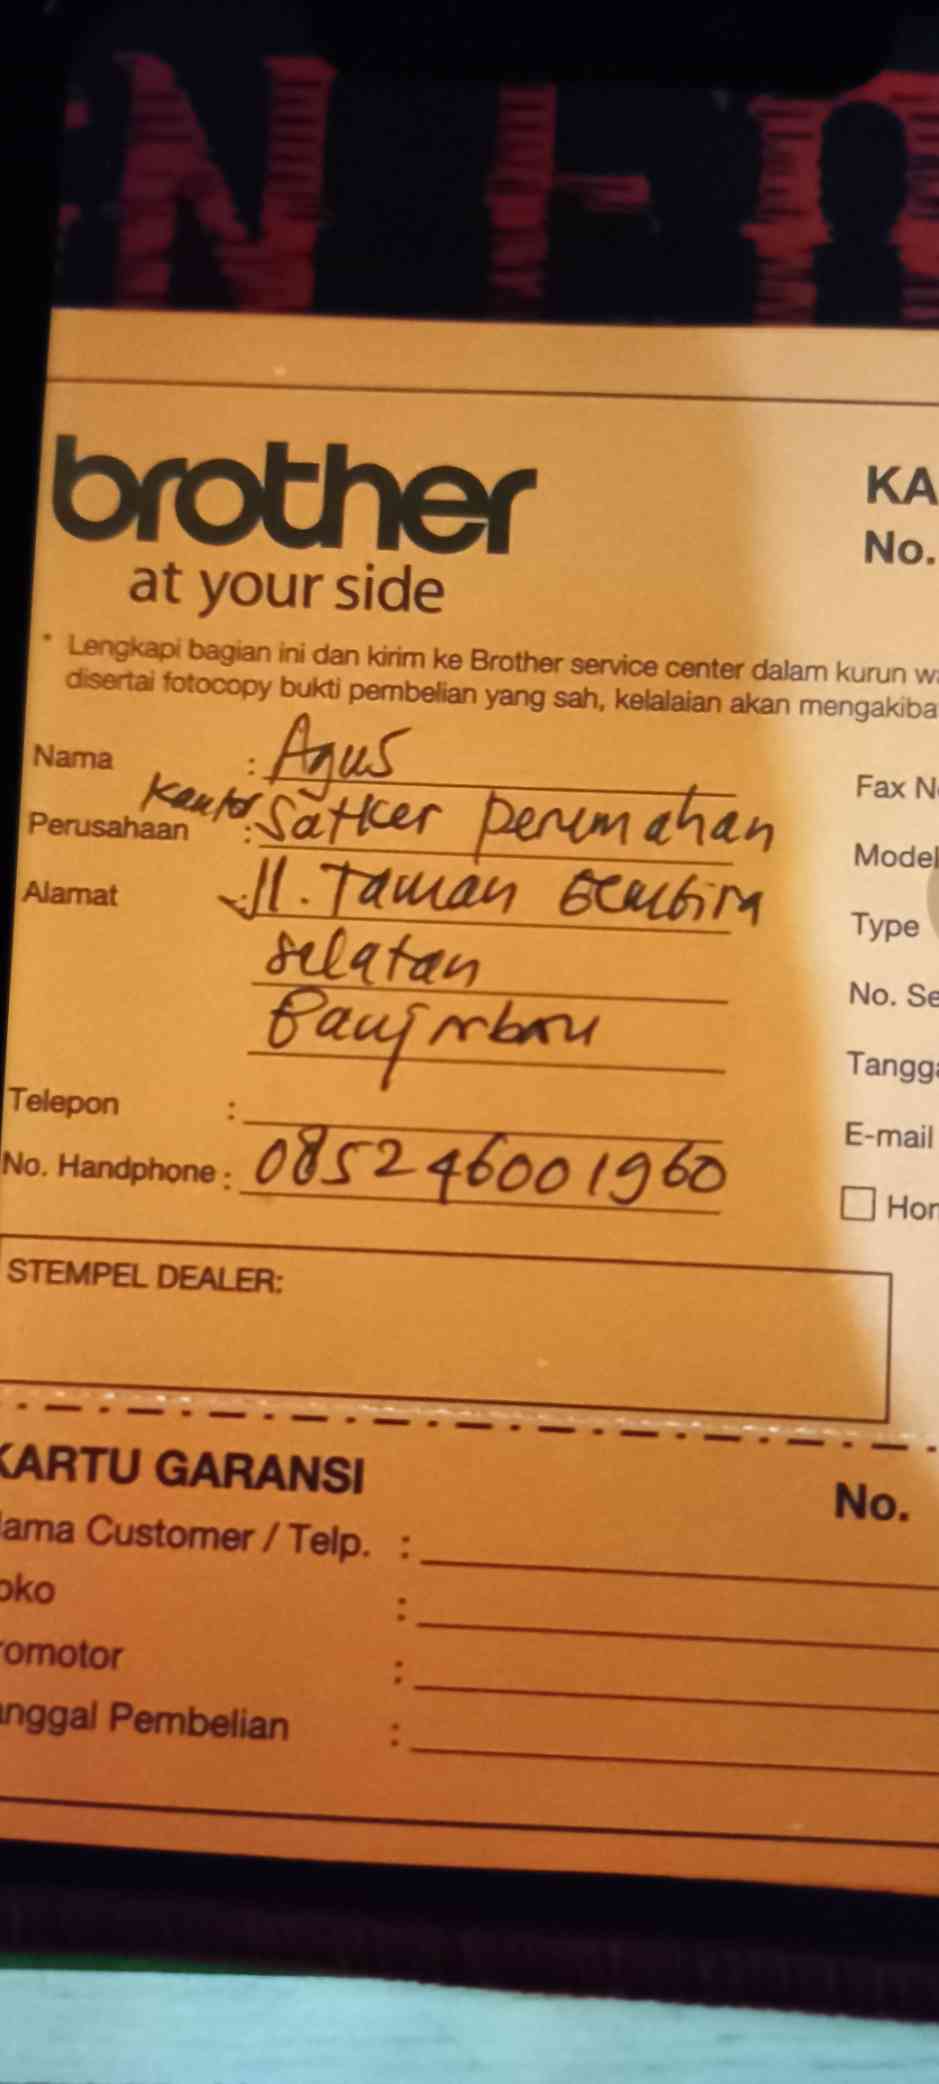 brother
at your side
KA
No.
* Lengkapi bagian ini dan kirim ke Brother service center dalam kurun wa
disertai fotocopy bukti pembelian yang sah, kelalaian akan mengakiba
Nama : Agus
Fax No
Perusahaan : Kantor Satker perumahan
Model
Alamat Jl. Taman Gembira
Type
selatan
No. Se
Banjarbaru
Tangga
Telepon :
E-mail
No. Handphone : 085246001960
Hor
STEMPEL DEALER:
KARTU GARANSI
No.
ama Customer / Telp. :
oko :
romotor :
anggal Pembelian :